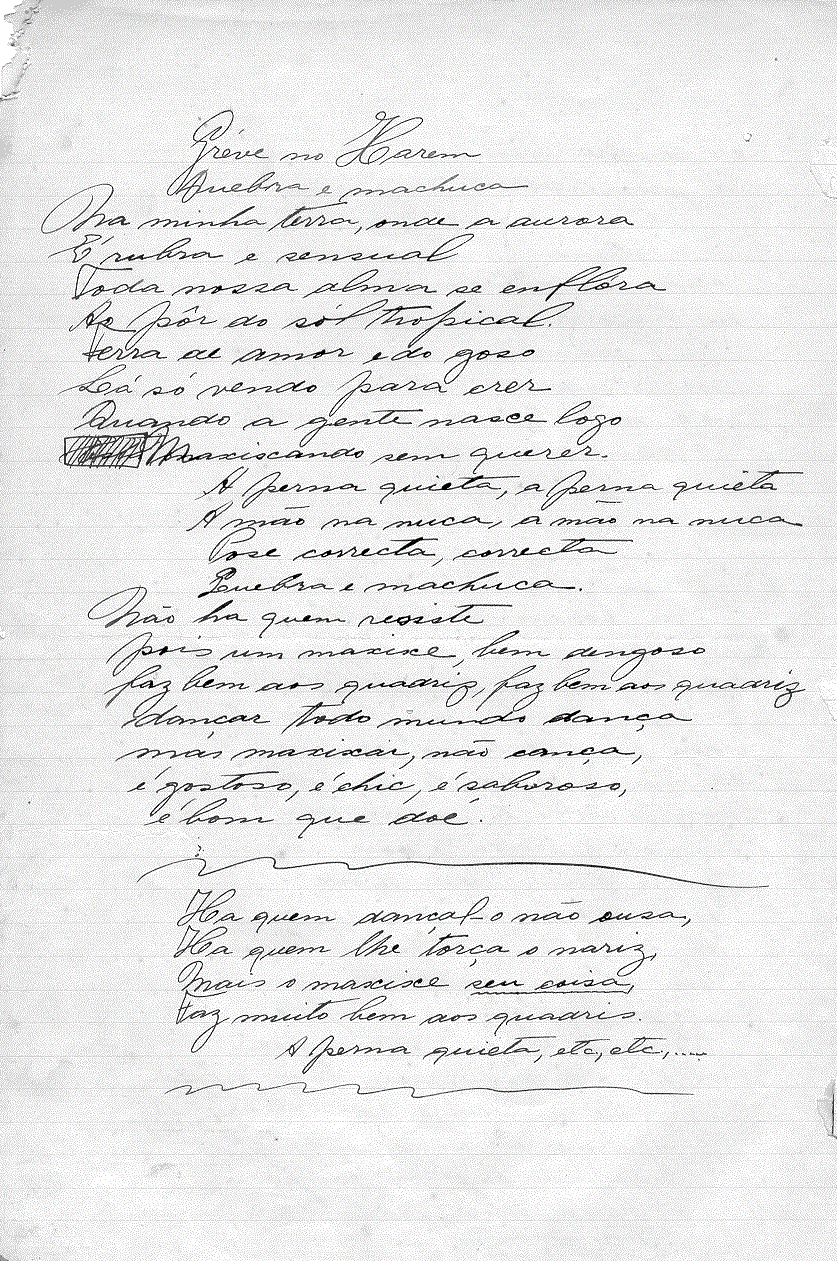 Gréve no Harem
Quebra e machuca
Na minha terra, onde a aurora
É rubra e sensual
Toda nossa alma se enflóra
Ao pôr do sól tropical.
Terra de amor e do goso
Lá só vendo para crer
Quando a gente nasce logo
Maxiscando sem querer.
A perna quieta, a perna quieta
A mão na nuca, a mão na nuca
Pose correcta, correcta
Quebra e machuca.
Não ha quem resiste
pois um maxixe, bem dengoso
faz bem aos quadriz, faz bem aos quadriz
dancar todo mundo dança
más maxixar, não cança,
é gostoso, é chic, é saboroso,
é bom que doé.
Ha quem dançal-o não ousa,
Ha quem lhe torça o nariz,
Mais o maxixe seu coisa,
Faz muito bem aos quadris.
A perna quieta, etc, etc,....